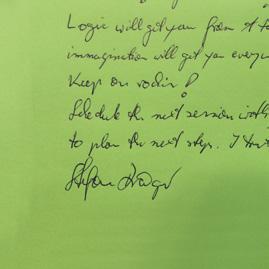 Logic will get you from A to
immagination will get you every
Keep on rockin!
Schedule the next session with
to plan the next steps. I